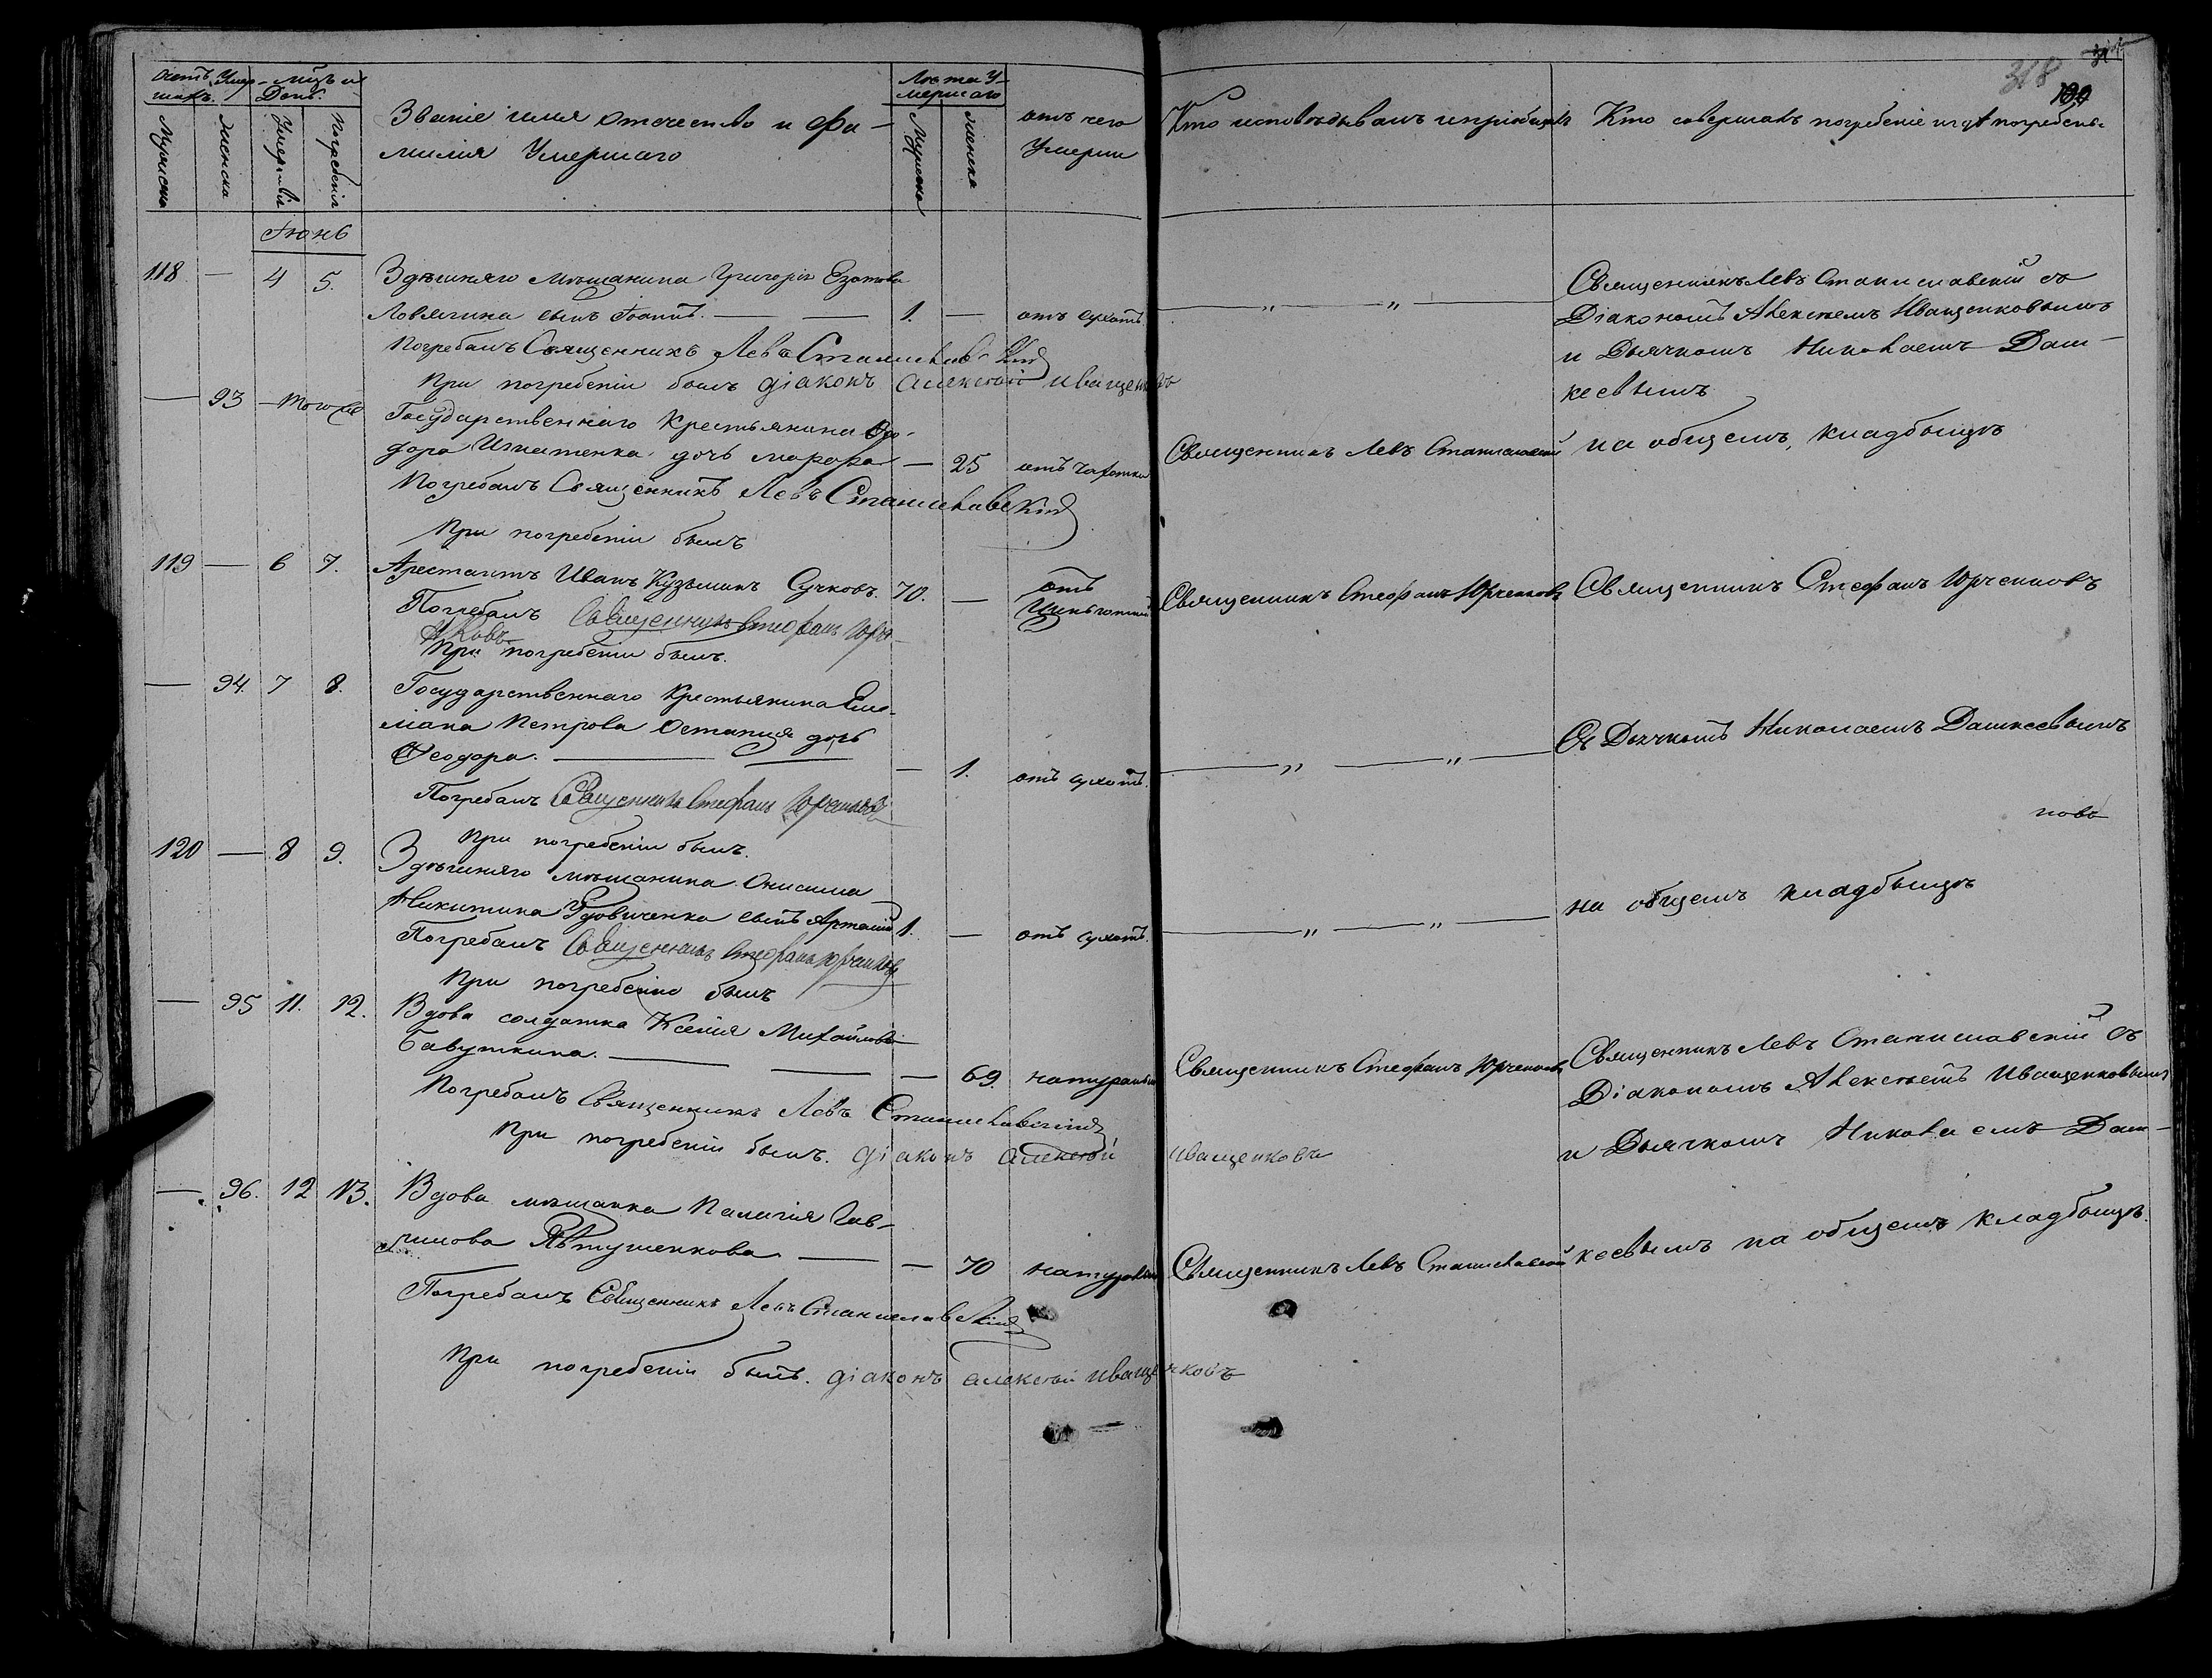 318
Счетъ Умер-
шихъ.
Мѣсяцъ и
День.
Мужеска
Женска
Умертвія
Погребенія
Званіе имя отечество и фа-
милія Умершаго
Лѣта У-
мершаго
Мужеска
Женска
отъ чего
Умерли
Кто исповѣдывалъ и пріобщалъ
Кто совершалъ погребеніе и гдѣ погребены
Іюнь
118 — 4 5. Здѣшняго мѣщанина Григорія
Ловягина сынъ Іоаннъ. — — 1. — отъ сухотъ. — „ — „ —
Погребалъ Священникъ Левъ Станиславскій
При погребеніи былъ діаконъ Алексѣй Иващенковъ
Священникъ Левъ Станиславскій съ
Діакономъ Алексѣемъ Иващенковымъ
и Дьячкомъ Николаемъ Даш-
кеевымъ
на общемъ кладбыщѣ
— 93 — того же Государственнаго Крестьянина Фео-
дора Игнатенка дочь Марфа — 25 отъ чахотки Священникъ Левъ Станиславскій
Погребалъ Священникъ Левъ Станиславскій
При погребеніи былъ
119 — 6 7. Арестантъ Иванъ Кузьминъ Сучковъ. 70. — отъ
Цынготной Священникъ Стефанъ Юрченковъ Священникъ Стефанъ Юрченковъ
Погребалъ Священникъ Стефанъ Юрче-
нковъ
При погребеніи былъ.
— 94. 7 8. Государственнаго Крестьянина Еме-
ліана Петрова Остапця дочь
Феодора. — — — 1. отъ сухотъ. — „ — „ —
Съ Дьячкомъ Николаемъ Дашкеевымъ
Погребалъ Священникъ Стефанъ Юрченковъ
При погребеніи былъ.
120 — 8 9. Здѣшняго мѣщанина Онисима
Никитина Удовиченка сынъ Артемій 1. — отъ сухотъ. — „ — „ —
на общемъ кладбыщѣ
Погребалъ Священникъ Стефанъ Юрченковъ
При погребеніи былъ
— 95 11. 12. Вдова солдатка Ксенія Михайлова
Бавуткина. — — — 69. натуральн Священникъ Стефанъ Юрченковъ
Погребалъ Священникъ Левъ Станиславскій
При погребеніи былъ. діаконъ Алексѣй Иващенковъ
Священникъ Левъ Станиславскій съ
Діакономъ Алексѣемъ Иващенковымъ
и Дьячкомъ Николаемъ Даш-
кеевымъ на общемъ кладбыщѣ.
— 96. 12 13. Вдова мѣщанка Палагія Гав-
рилова Явтушенкова — — 70 натуральн Священникъ Левъ Станиславскій
Погребалъ Священникъ Левъ Станиславскій
При погребеніи былъ. діаконъ Алексѣй Иващенковъ